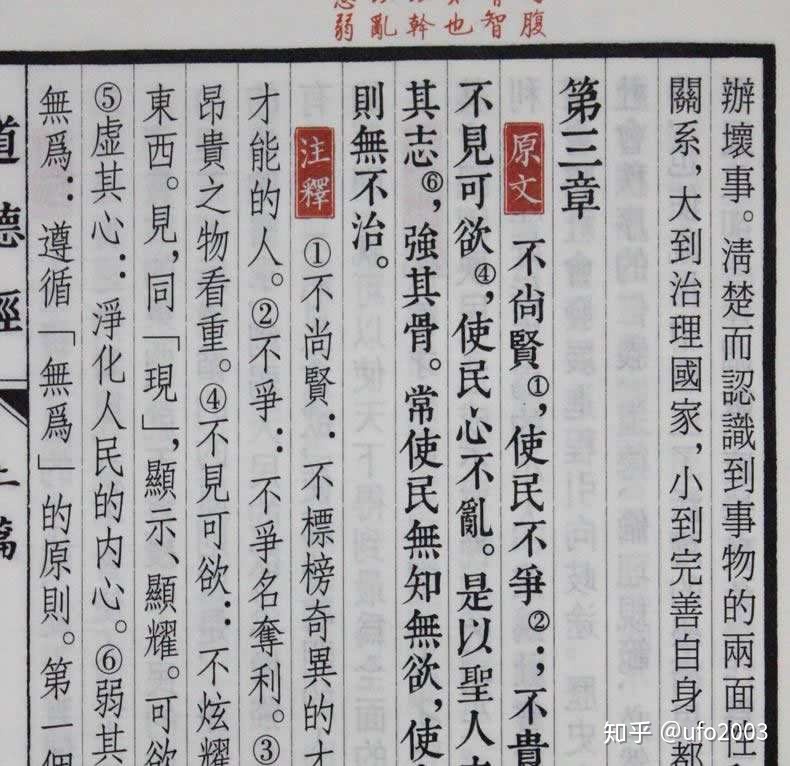 腹
智
也
幹
亂
弱
辦壞事。清楚而認識到事物的兩面性
關系，大到治理國家，小到完善自身 都
第三章
原文 不尚賢①，使民不爭②；不貴
不見可欲④，使民心不亂。是以聖人
其志⑥，強其骨。常使民無知無欲，使
則無不治。
注釋 ①不尚賢：不標榜奇異的才
才能的人。②不爭：不爭名奪利。③
昂貴之物看重。④不見可欲：不炫耀
東西。見，同「現」，顯示、顯耀。可欲
⑤虛其心：淨化人民的内心。⑥弱其
無爲：遵循「無爲」的原則。第一個
道德經 上篇
知乎 @ufo2003